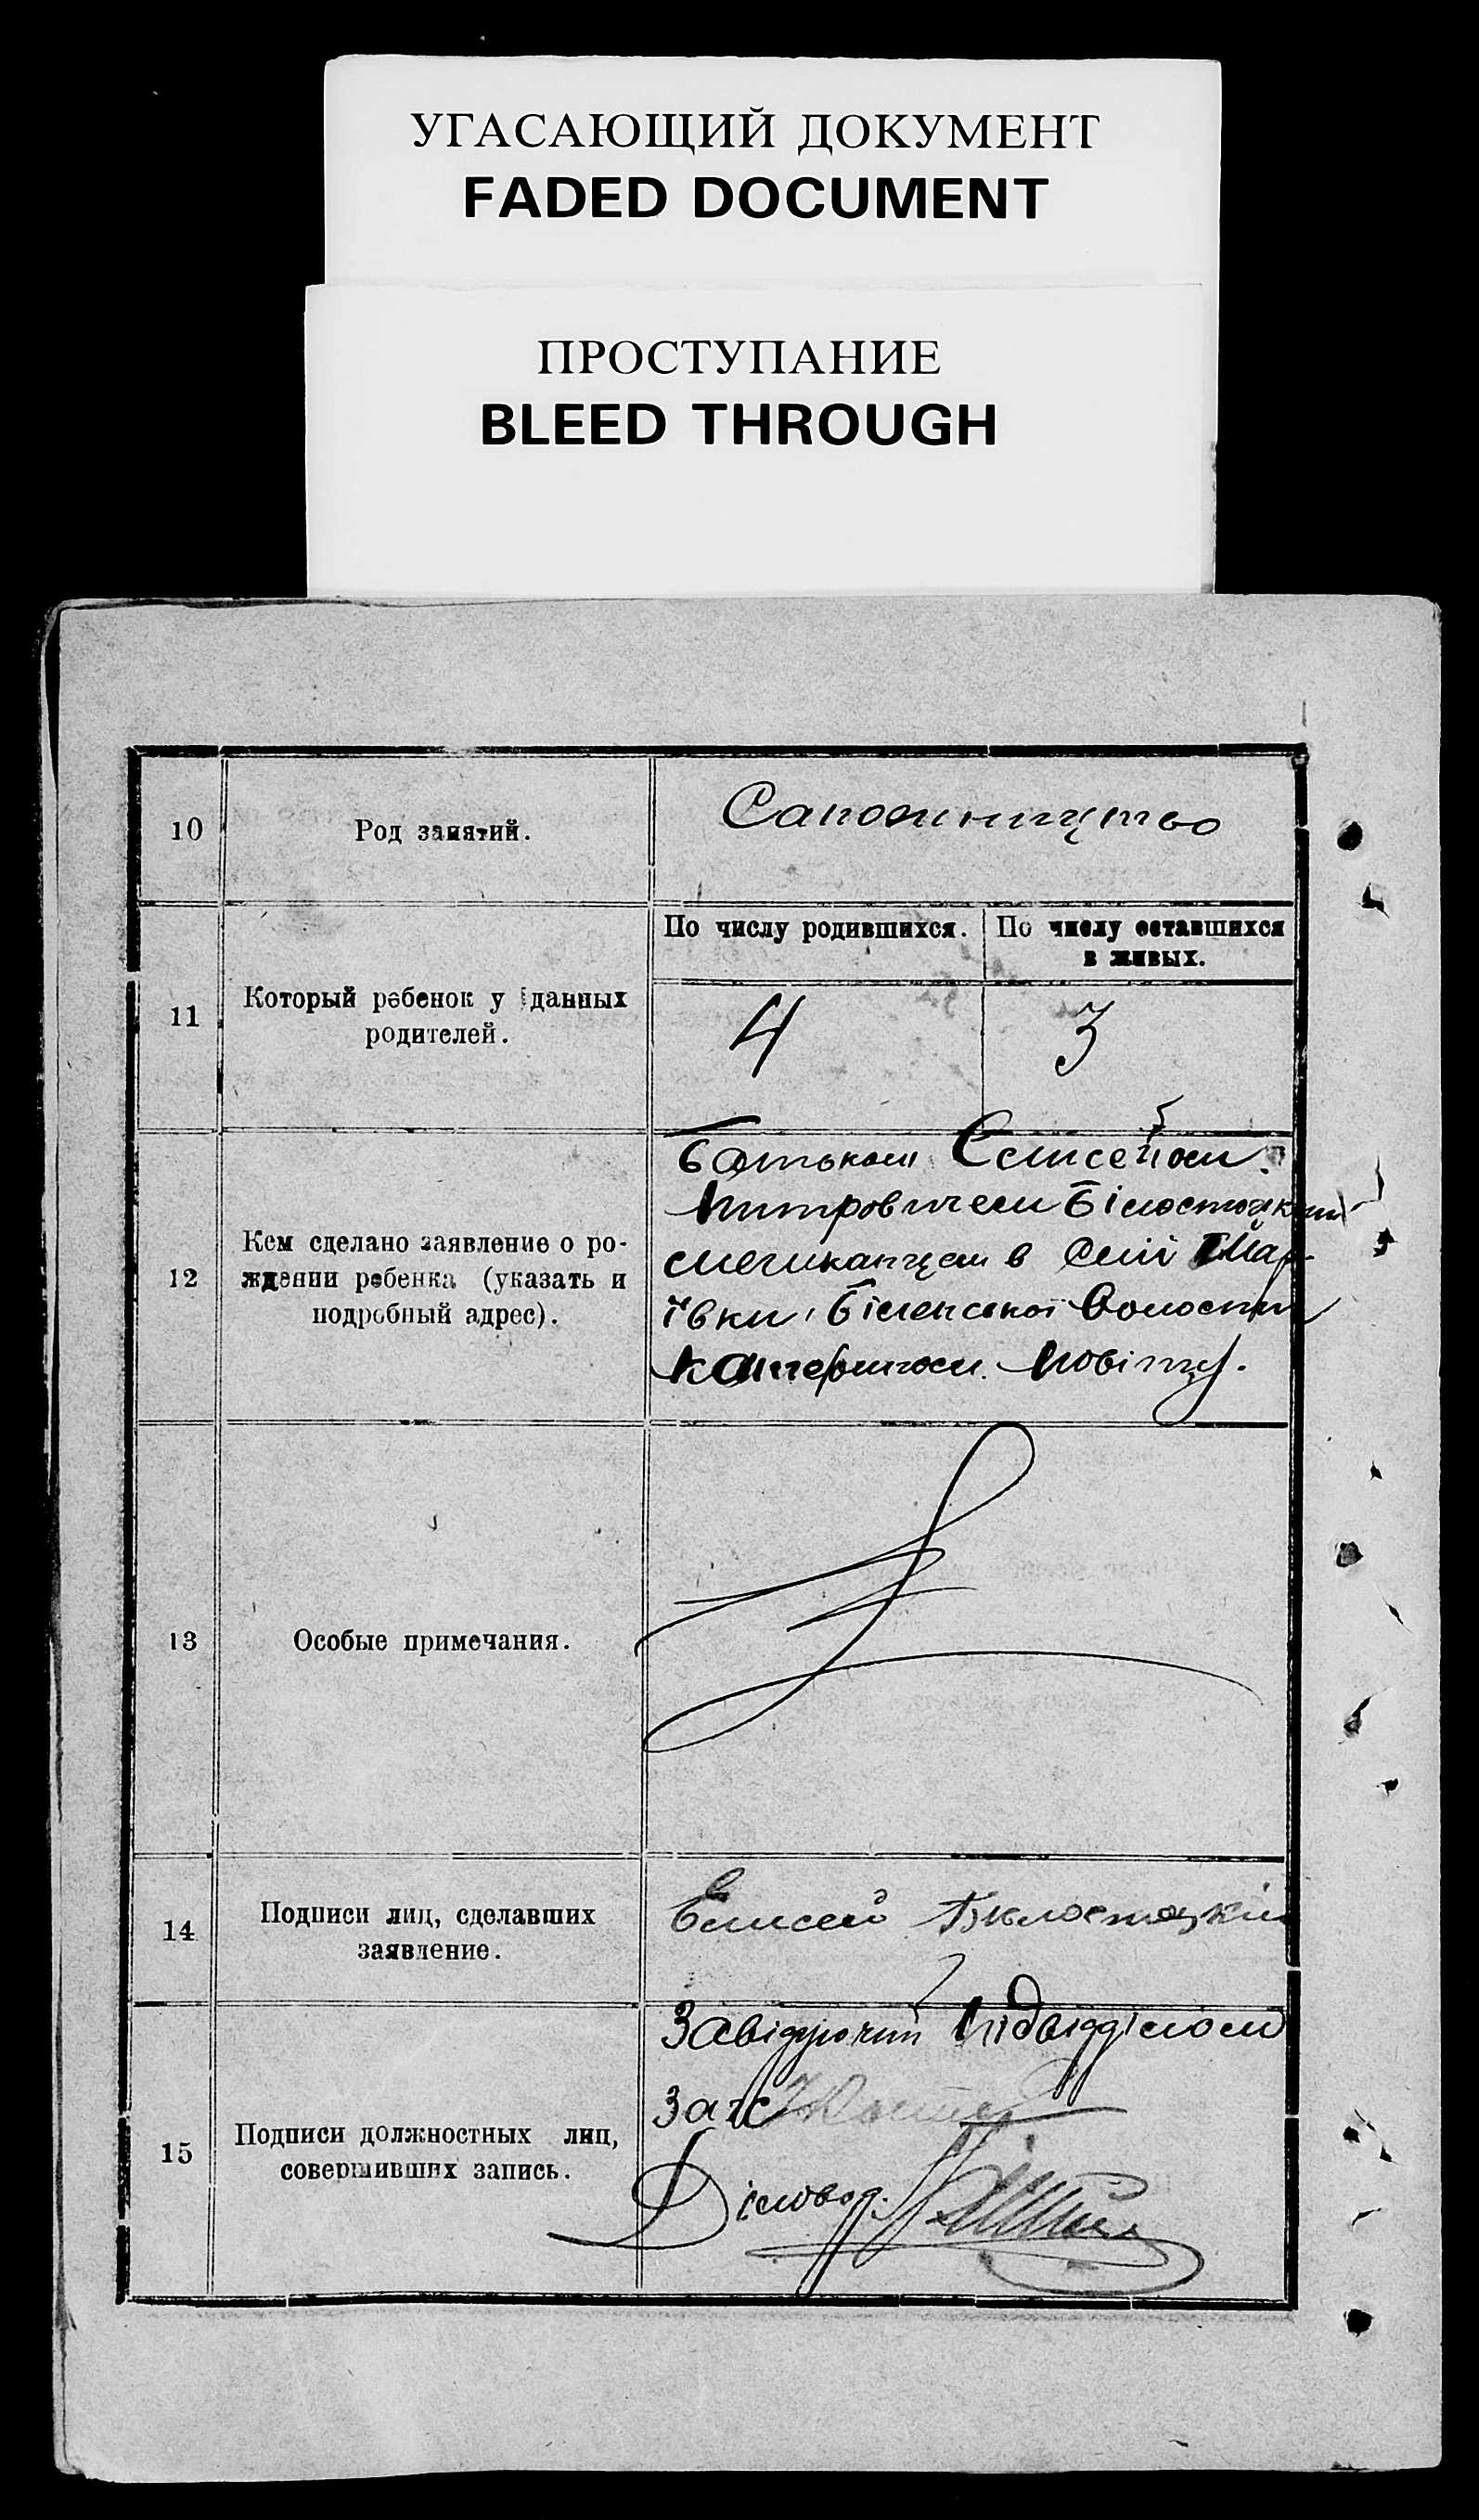 УГАСАЮЩИЙ ДОКУМЕНТ
FADED DOCUMENT
ПРОСТУПАНИЕ
BLEED THROUGH
10
Род занятий.
11
Который ребенок у данных
родителей.
По числу родившихся.
По числу оставшихся
в живых.
4
3
12
Кем сделано заявление о ро-
ждении ребенка (указать и
подробный адрес).
батьком Єлисейом
Білостоцким
мешканцем в селі
ївки, Біленської Волости
повіту.
13
Особые примечания.
14
Подписи лиц, сделавших
заявление.
Елисей Бѣлостоцкий
15
Подписи должностных лиц,
совершивших запись.
Завідуючий Підвідділом
Загс
Діловод.